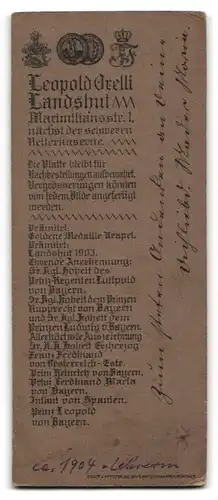 Leopold Orelli
Landshut
Maximilianstr. 1,
nächst der schweren
Reiterkaserne.
Die Platte bleibt für
Nachbestellungen aufbewahrt.
Vergrösserungen können
von jedem Bilde angefertigt
werden.
Prämiirt:
Goldene Medaille Neapel.
Prämiirt:
Landshut 1903.
Ehrende Anerkennung:
Sr. Kgl. Hoheit des
Prinz-Regenten Luitpold
von Bayern.
Sr. Kgl. Hoheit des Prinzen
Rupprecht von Bayern
und Sr. Kgl. Hoheit dem
Prinzen Ludwig v. Bayern.
Allerhöchste Auszeichnung
Sr. K. K. Hoheit Erzherzog
Franz Ferdinand
von Oesterreich-Este.
Prinz Heinrich von Bayern.
Prinz Ferdinand Maria
von Bayern.
Infant von Spanien.
Prinz Leopold
von Bayern.
Zum steten Andenken an Deine
Schwester
ca. 1904